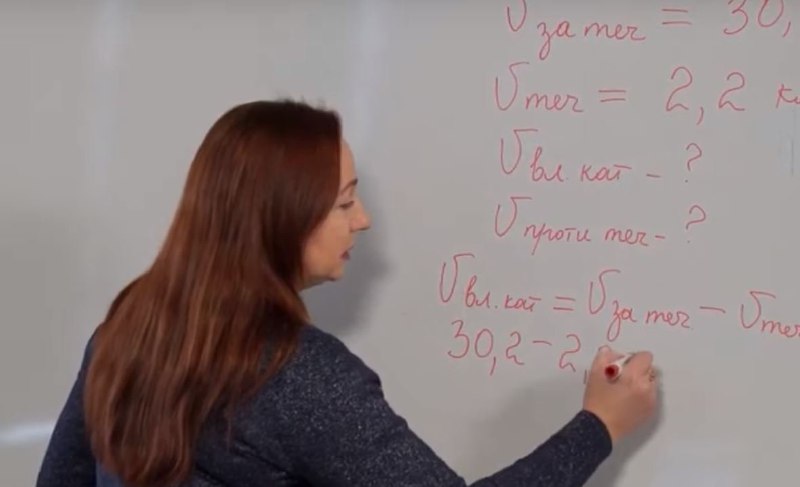 V за теч = 30,
V теч = 2,2 к
V вл. кат - ?
V проти теч - ?
V вл. кат = V за теч - V теч
30,2 - 2,